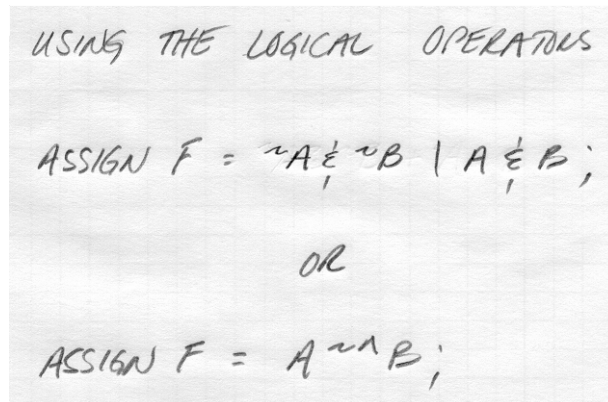 USING THE LOGICAL OPERATORS
ASSIGN F = ~A & ~B | A & B;
OR
ASSIGN F = A ~^ B;